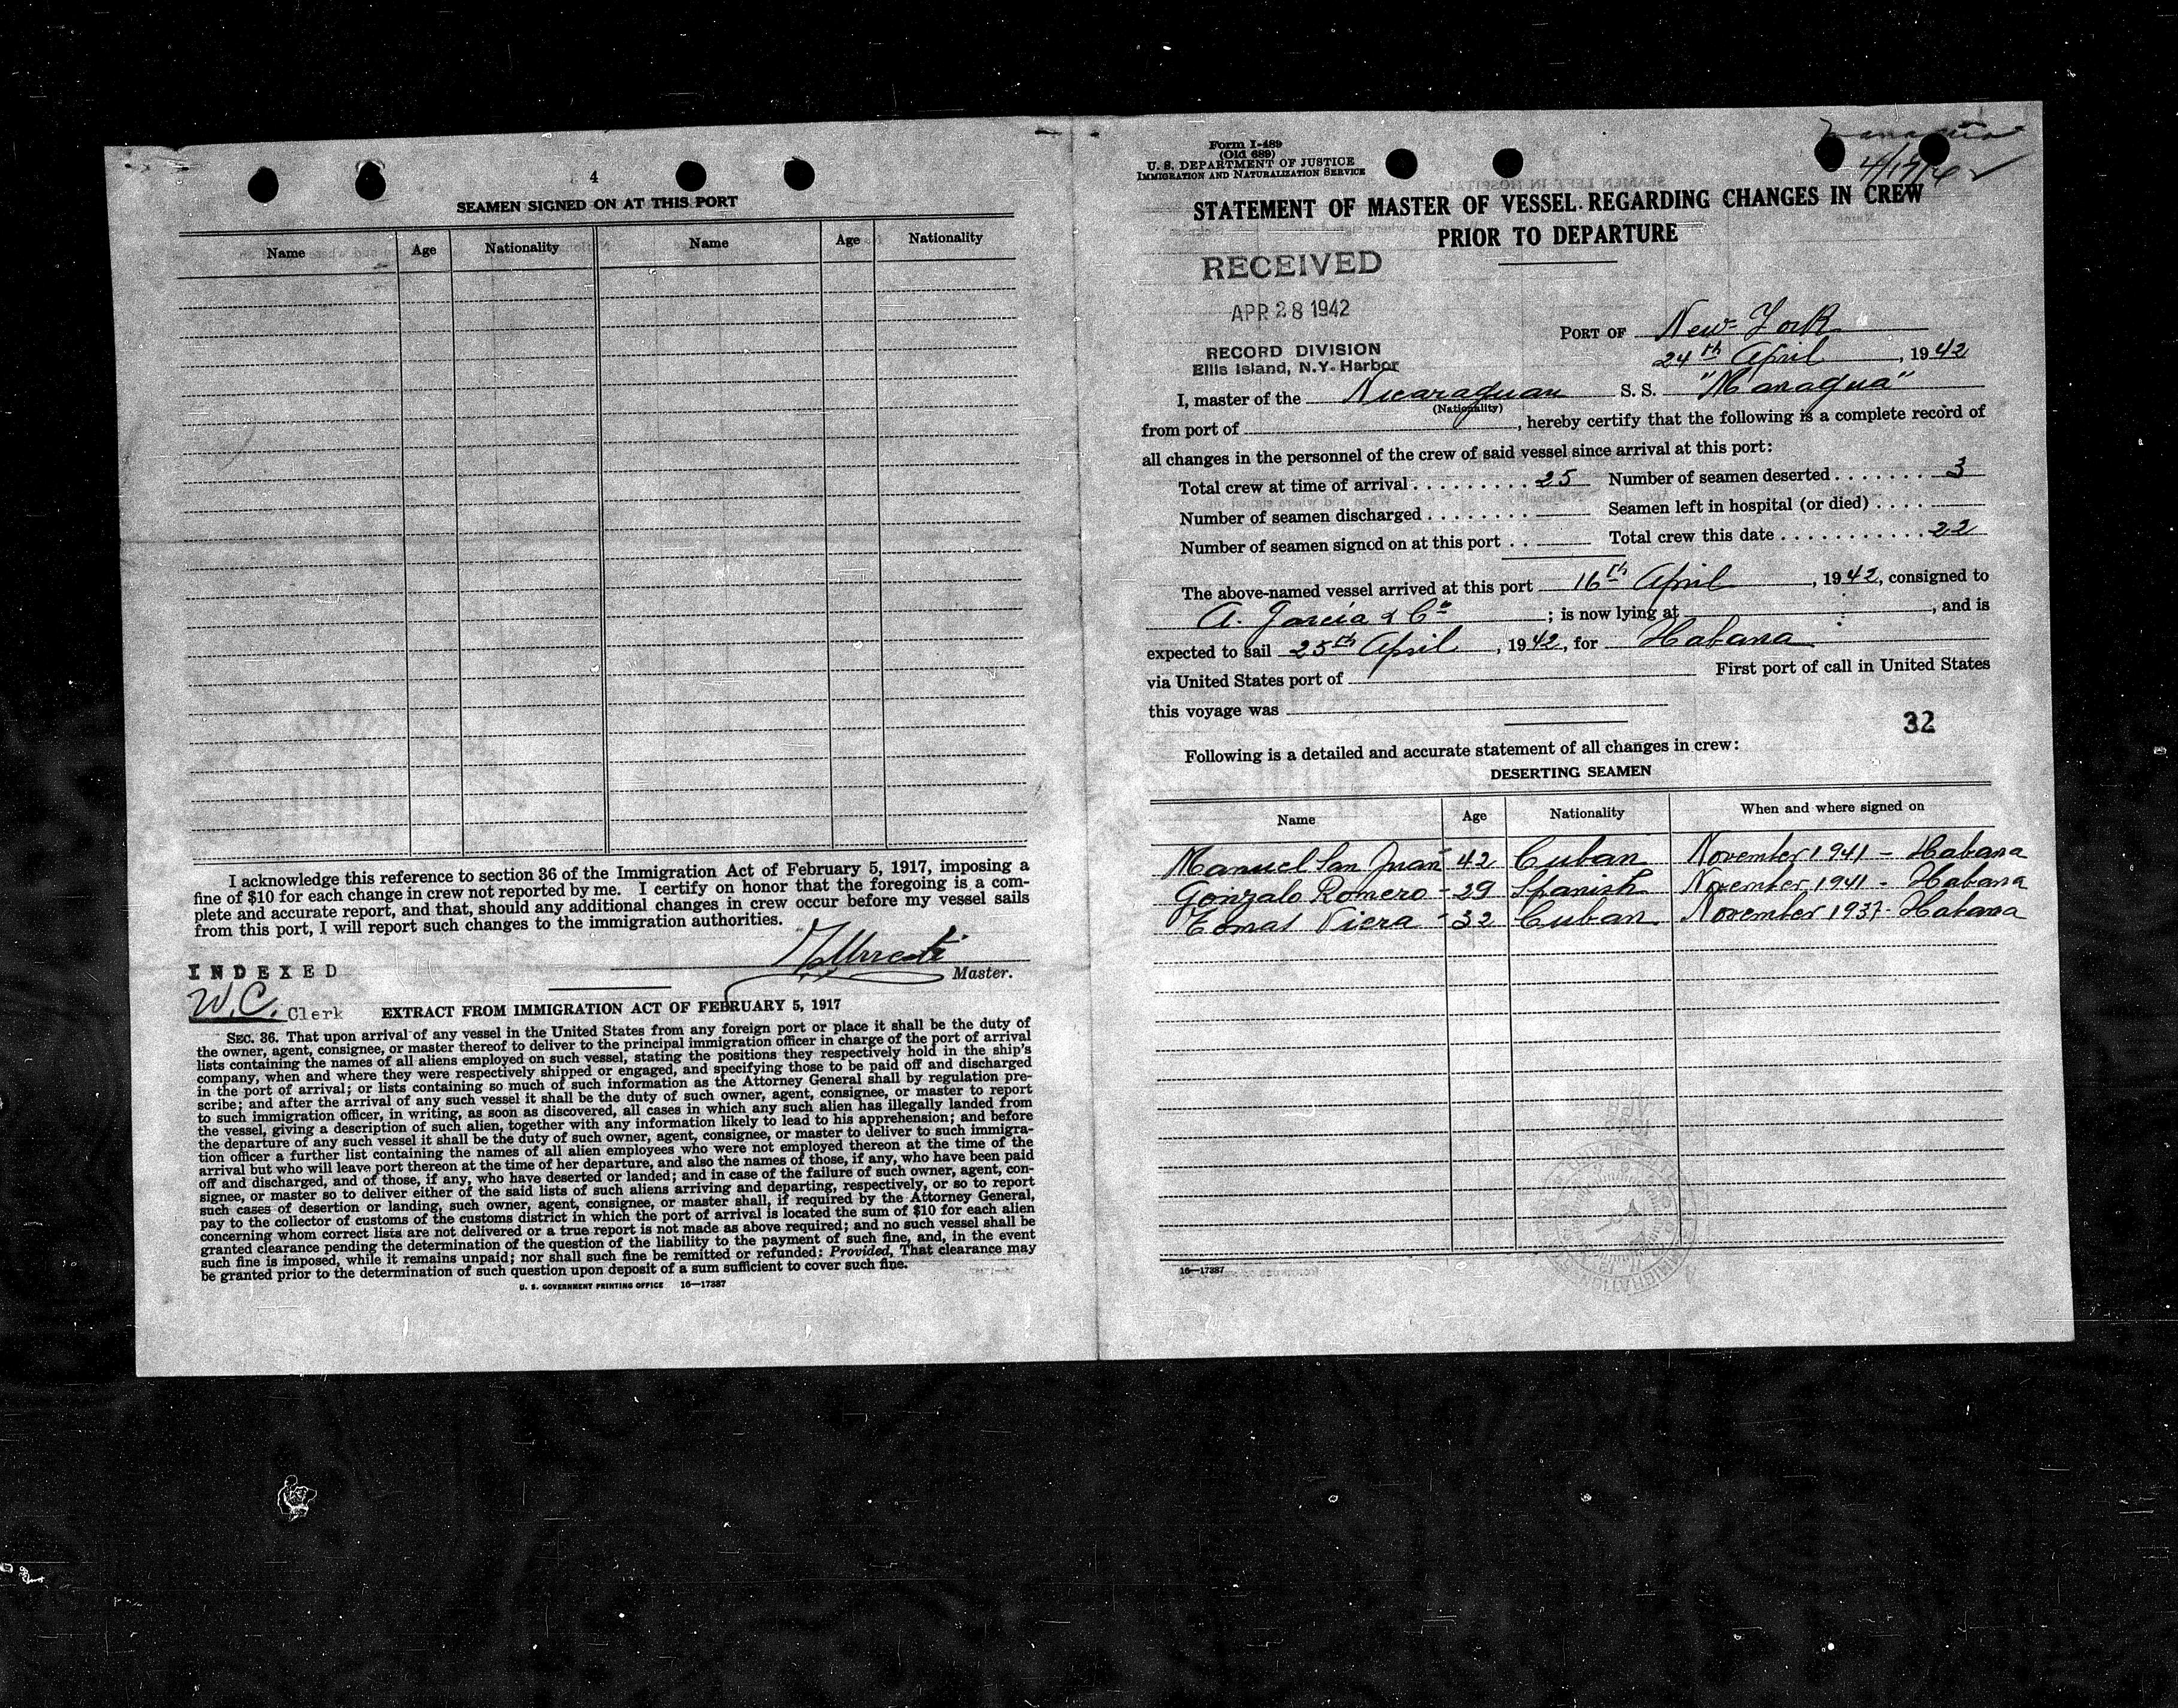 4
SEAMEN SIGNED ON AT THIS PORT
Name Age Nationality Name Age Nationality
I acknowledge this reference to section 36 of the Immigration Act of February 5, 1917, imposing a
fine of $10 for each change in crew not reported by me. I certify on honor that the foregoing is a com-
plete and accurate report, and that, should any additional changes in crew occur before my vessel sails
from this port, I will report such changes to the immigration authorities.
Master.
INDEXED
W.C. Clerk
EXTRACT FROM IMMIGRATION ACT OF FEBRUARY 5, 1917
SEC. 36. That upon arrival of any vessel in the United States from any foreign port or place it shall be the duty of
the owner, agent, consignee, or master thereof to deliver to the principal immigration officer in charge of the port of arrival
lists containing the names of all aliens employed on such vessel, stating the positions they respectively hold in the ship's
company, when and where they were respectively shipped or engaged, and specifying those to be paid off and discharged
in the port of arrival; or lists containing so much of such information as the Attorney General shall by regulation pre-
scribe; and after the arrival of any such vessel it shall be the duty of such owner, agent, consignee, or master to report
to such immigration officer, in writing, as soon as discovered, all cases in which any such alien has illegally landed from
the vessel, giving a description of such alien, together with any information likely to lead to his apprehension; and before
the departure of any such vessel it shall be the duty of such owner, agent, consignee, or master to deliver to such immigra-
tion officer a further list containing the names of all alien employees who were not employed thereon at the time of the
arrival but who will leave port thereon at the time of her departure, and also the names of those, if any, who have been paid
off and discharged, and of those, if any, who have deserted or landed; and in case of the failure of such owner, agent, con-
signee, or master so to deliver either of the said lists of such aliens arriving and departing, respectively, or so to report
such cases of desertion or landing, such owner, agent, consignee, or master shall, if required by the Attorney General,
pay to the collector of customs of the customs district in which the port of arrival is located the sum of $10 for each alien
concerning whom correct lists are not delivered or a true report is not made as above required; and no such vessel shall be
granted clearance pending the determination of the question of the liability to the payment of such fine, and, in the event
such fine is imposed, while it remains unpaid; nor shall such fine be remitted or refunded: Provided, That clearance may
be granted prior to the determination of such question upon deposit of a sum sufficient to cover such fine.
U. S. GOVERNMENT PRINTING OFFICE 16—17387
Form I-489
(Old 689)
U. S. DEPARTMENT OF JUSTICE
IMMIGRATION AND NATURALIZATION SERVICE
STATEMENT OF MASTER OF VESSEL REGARDING CHANGES IN CREW
PRIOR TO DEPARTURE
RECEIVED
APR 28 1942
RECORD DIVISION
Ellis Island, N.Y. Harbor
PORT OF New-York
24th April, 1942
I, master of the Nicaraguan S. S. "Managua"
(Nationality)
from port of , hereby certify that the following is a complete record of
all changes in the personnel of the crew of said vessel since arrival at this port:
Total crew at time of arrival 25 Number of seamen deserted 3
Number of seamen discharged Seamen left in hospital (or died)
Number of seamen signed on at this port Total crew this date 22
The above-named vessel arrived at this port 16th April, 1942, consigned to
A. Garcia & Co ; is now lying at , and is
expected to sail 25th April, 1942, for Habana
via United States port of First port of call in United States
this voyage was
32
Following is a detailed and accurate statement of all changes in crew:
DESERTING SEAMEN
Name Age Nationality When and where signed on
Manuel San Juan 42 Cuban November 1941 - Habana
Gonzalo Romero - 29 Spanish November 1941 - Habana
Tomas Viera - 32 Cuban November 1937 - Habana
16—17387